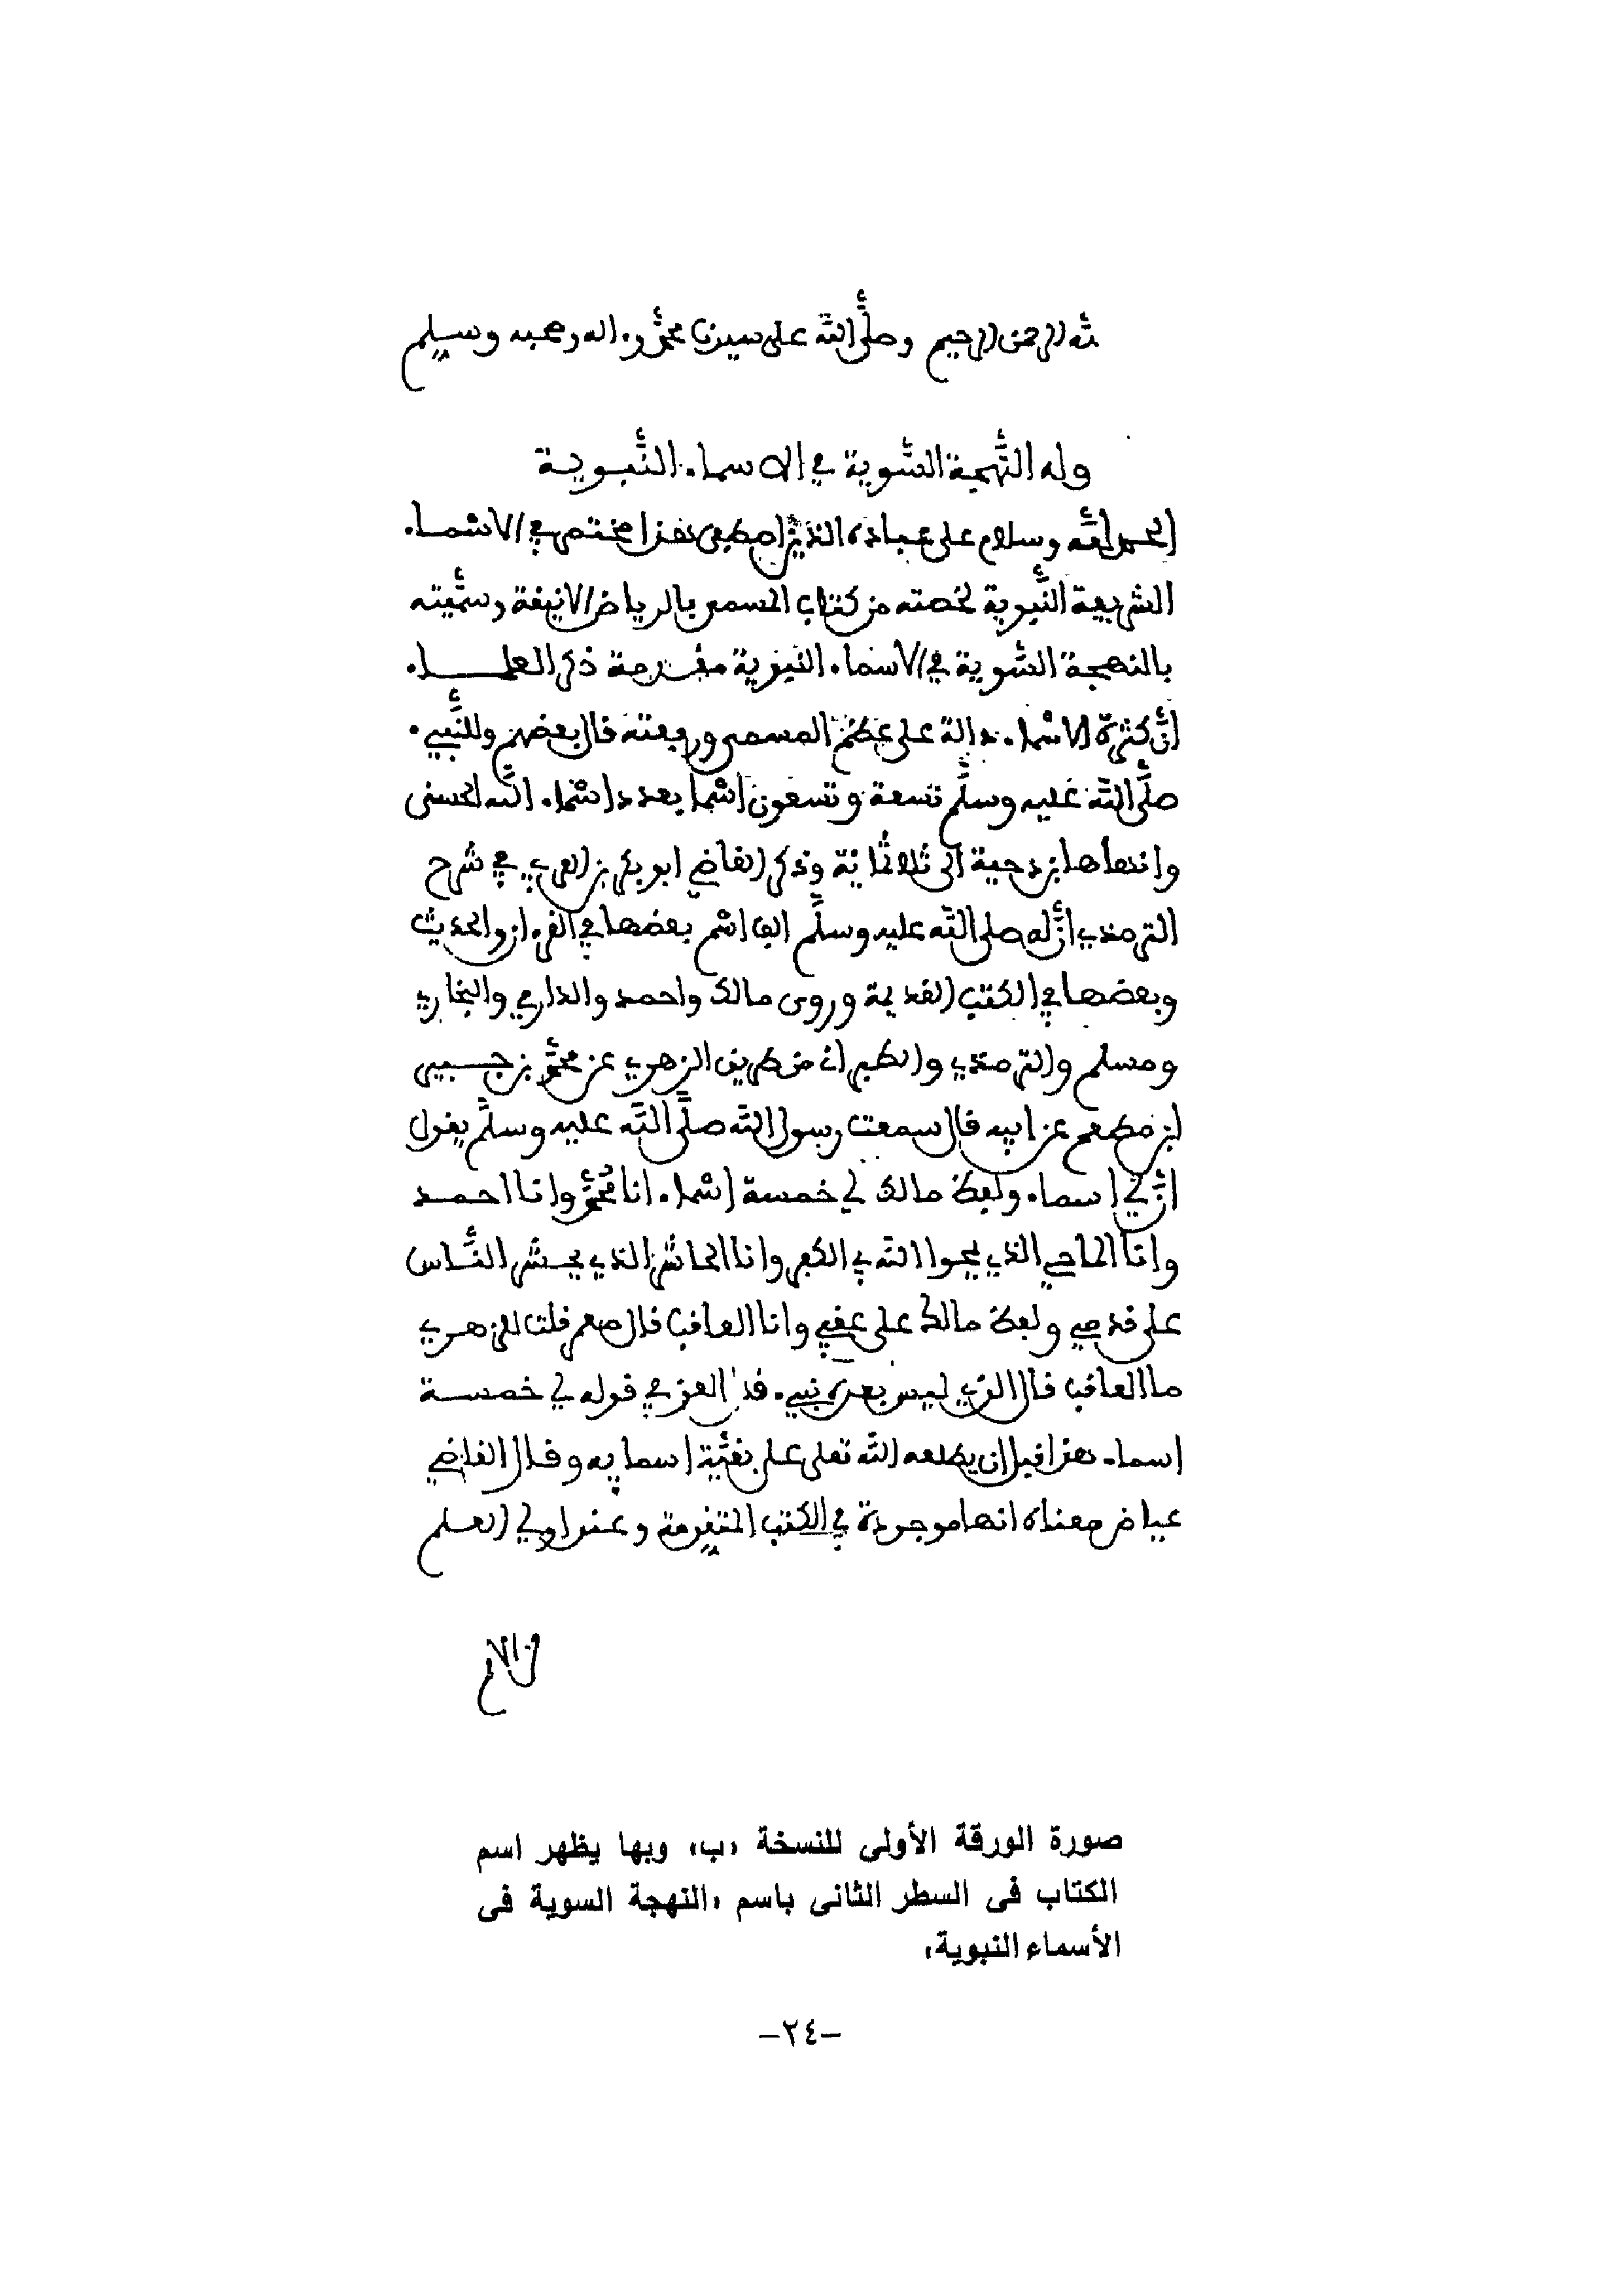 لله الرحمن الرحيم وصلى الله على سيدنا محمد وءاله وصحبه وسلم
وله النهجة السوية في الاسماء النبوية
الحمد لله وسلام على عباده الذين اصطفى هذا مختصر في الاسماء
الشريعة النبوية لخصته من كتاب المسمى بالرياض الانيفة وسميته
بالنهجة السوية في الاسماء النبوية مقدمة ذكر العلماء
أن كثرة الاسماء دالة على عظم المسمى ورفعته قال بعضهم وللنبيء
صلى الله عليه وسلم تسعة وتسعون اسما بعدد اسماء الله الحسنى
وانهاها بن دحية الى ثلاثماية وذكر القاضي ابو بكر بن العربي في شرح
الترمذي أن له صلى الله عليه وسلم الف اسم بعضها في القرءان والحديث
وبعضها في الكتب القديمة وروى مالك واحمد والدارمي والبخاري
ومسلم والترمذي والطبراني من طريق الزهري عن محمد بن جبير
ابن مطعم عن ابيه قال سمعت رسول الله صلى الله عليه وسلم يقول
أن لي اسماء ولفظ مالك لي خمسة اسماء انا محمد وانا احمد
وانا الماحي الذي يمحوا الله بي الكفر وانا الحاشر الذي يحشر الناس
على قدمي ولفظ مالك على عقبي وانا العاقب قال معمر قلت للزهري
ما العاقب قال الذي ليس بعده نبيء قال العزفي قوله لي خمسة
اسماء هذا قبل ان يطلعه الله تعلى على بقية اسمايه وقال القاضي
عياض معناه انها موجودة في الكتب المتقدمة وعند اولي العلم
من الامم
صورة الورقة الأولى للنسخة «ب» وبها يظهر اسم
الكتاب فى السطر الثانى باسم «النهجة السوية فى
الأسماء النبوية»
-٢٤-